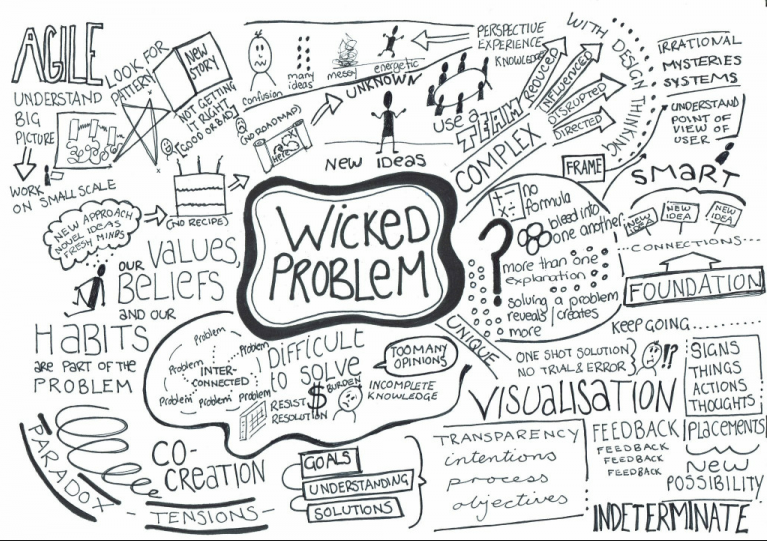 AGILE
UNDERSTAND
BIG
PICTURE
WORK
ON SMALL SCALE
LOOK FOR
PATTERN
NEW
STORY
NOT GETTING
IT RIGHT
[GOOD OR BAD]
confusion
many
ideas
messy
energetic
UNKNOWN
(NO ROADMAP)
HERE
NEW IDEAS
PERSPECTIVE
EXPERIENCE
KNOWLEDGE
use a TEAM
COMPLEX
REDUCED
INFLUENCED
DISRUPTED
DIRECTED
WITH DESIGN THINKING
IRRATIONAL
MYSTERIES
SYSTEMS
UNDERSTAND
POINT OF
VIEW OF
USER
FRAME
SMART
NEW
IDEA
NEW
IDEA
NEW
IDEA
...CONNECTIONS...
FOUNDATION
KEEP GOING........
(NO RECIPE)
NEW APPROACH
NOVEL IDEAS
FRESH MINDS
OUR VALUES,
BELIEFS
AND OUR
HABITS
ARE PART OF THE
PROBLEM
WICKED
PROBLEM
- ÷ + x
no
formula
bleed into
one another
?
more than one
explanation
solving a problem
reveals/creates
more
UNIQUE
ONE SHOT SOLUTION
NO TRIAL & ERROR
!?
Problem
Problem
Problem
Problem
Problem
Problem
INTER-
CONNECTED
DIFFICULT
to SOLVE
RESIST
RESOLUTION
$
BURDEN
TOO MANY
OPINIONS
INCOMPLETE
KNOWLEDGE
VISUALISATION
SIGNS
THINGS
ACTIONS
THOUGHTS
PLACEMENTS
NEW
POSSIBILITY
FEEDBACK
FEEDBACK
FEEDBACK
FEEDBACK
INDETERMINATE
TRANSPARENCY
intentions
process
objectives
PARADOX
CO-
CREATION
- TENSIONS -
GOALS
UNDERSTANDING
SOLUTIONS